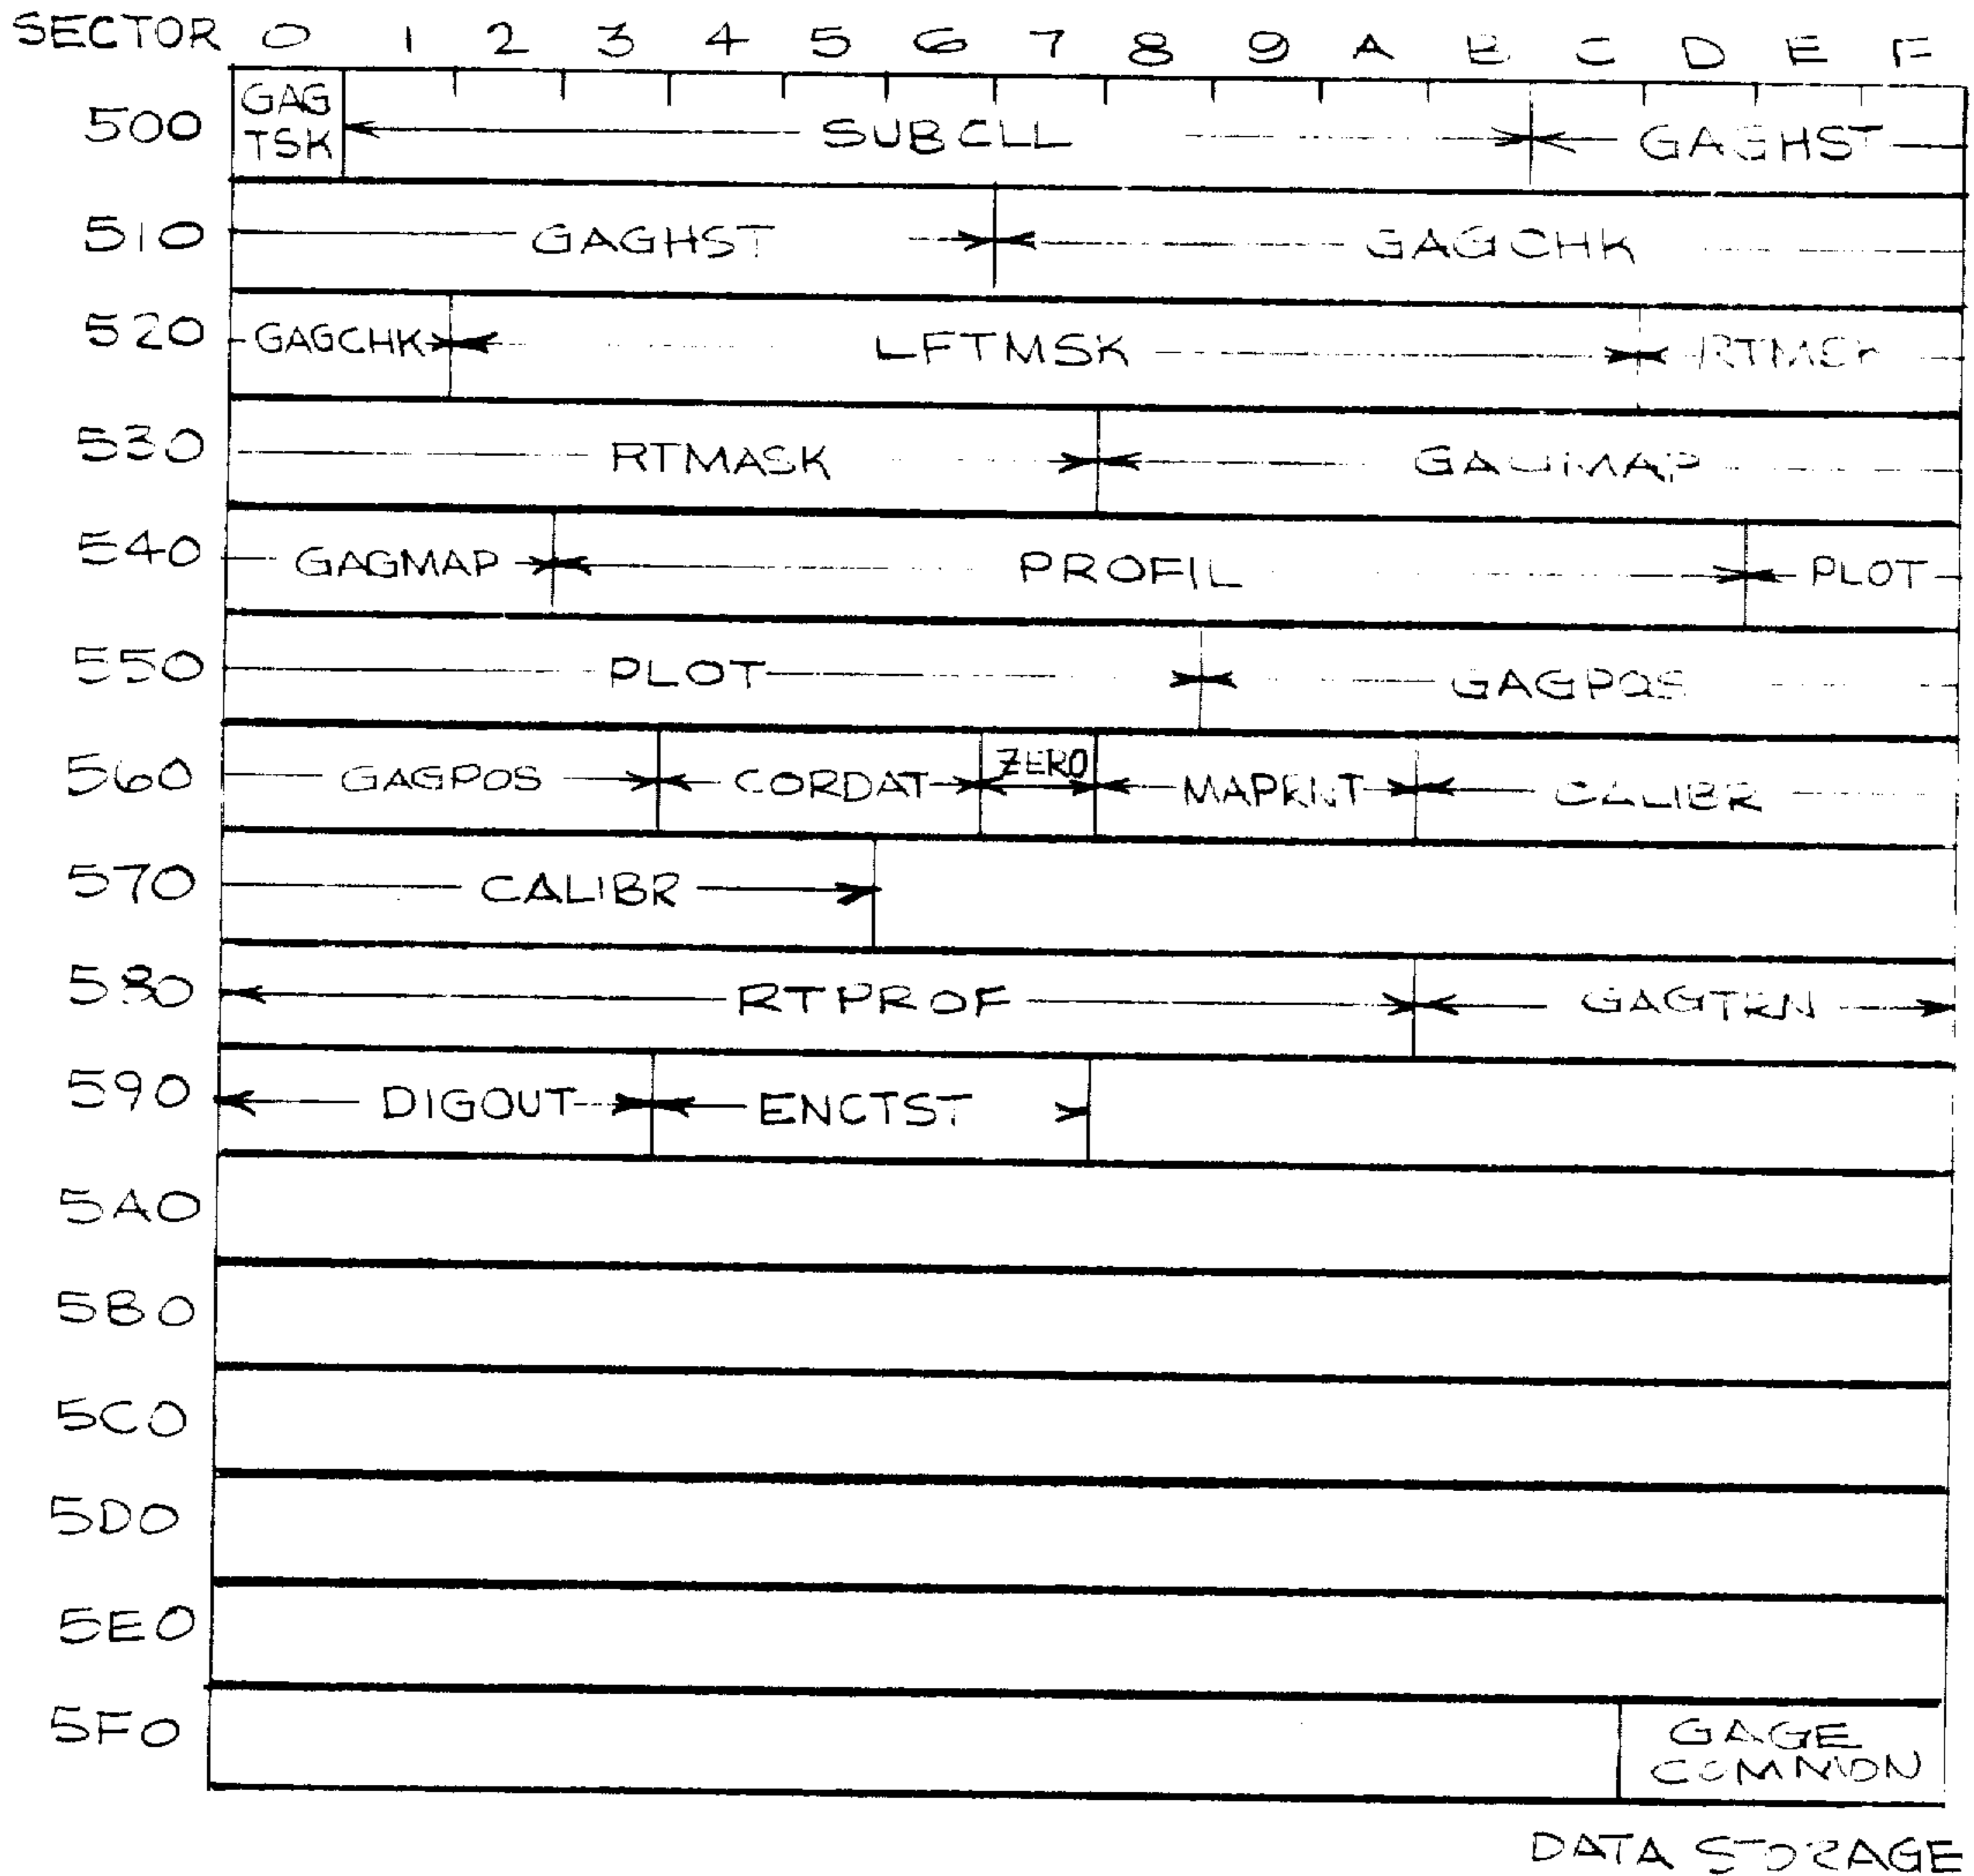 SECTOR 0 1 2 3 4 5 6 7 8 9 A B C D E F
500 GAG TSK SUBCLL GAGHST
510 GAGHST GAGCHK
520 GAGCHK LFTMSK RTMSK
530 RTMASK GAGMAP
540 GAGMAP PROFIL PLOT
550 PLOT GAGPOS
560 GAGPOS CORDAT ZERO CALIBR
570 CALIBR
580 RTPROF GAGTRN
590 DIGOUT ENCTST
5A0
5B0
5C0
5D0
5E0
5F0 GAGE COMMON
DATA STORAGE